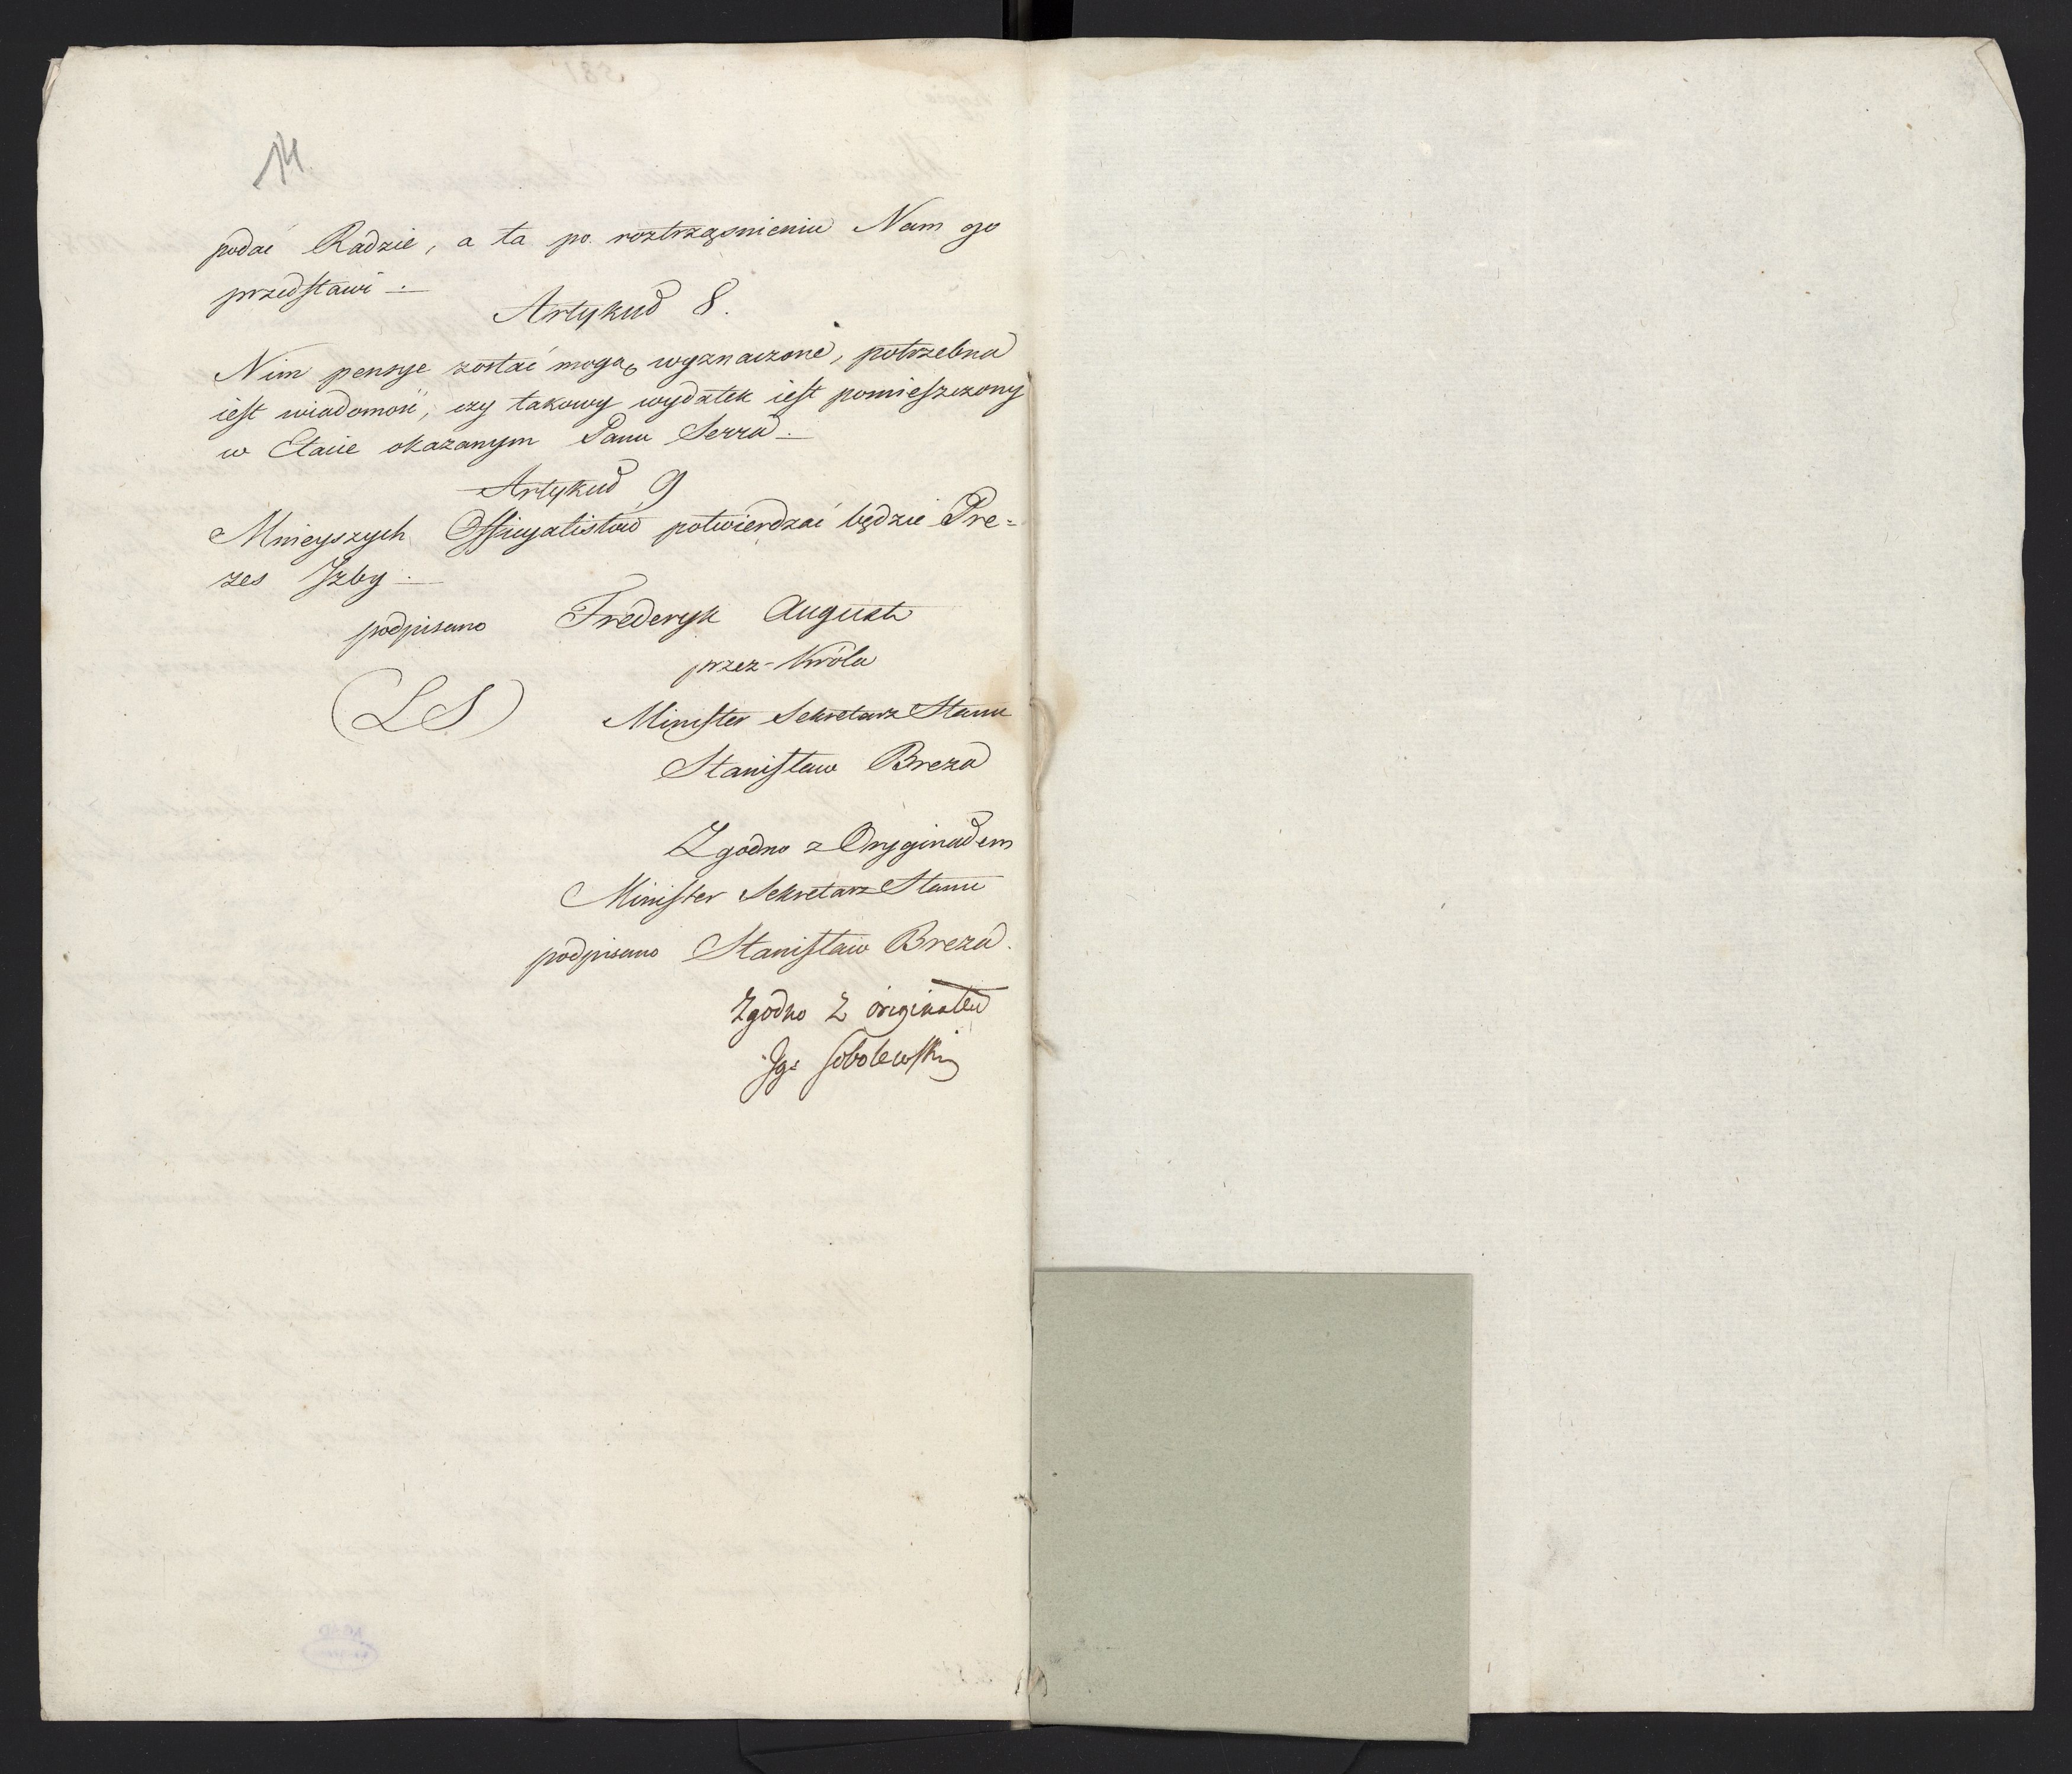 14.
podać Radzie, a ta po roztrząśnieniu Nam go
przedstawi.
Artykuł 8.
Nim pensye zostać mogą wyznaczone, potrzebna
iest wiadomość, czy takowy wydatek iest pomieszczony
w Etacie okazanym Panu Serra.
Artykuł 9
Mnieyszych Officyalistów potwierdzać będzie Pre=
zes Jzby.
podpisano Frederyk August
przez Króla
(LS) Minister Sekretarz Stanu
Stanisław Breza
Zgodno z Oryginałem
Minister Sekretarz Stanu
podpisano Stanisław Breza.
Zgodno z originałem
Jg: Sobolewski